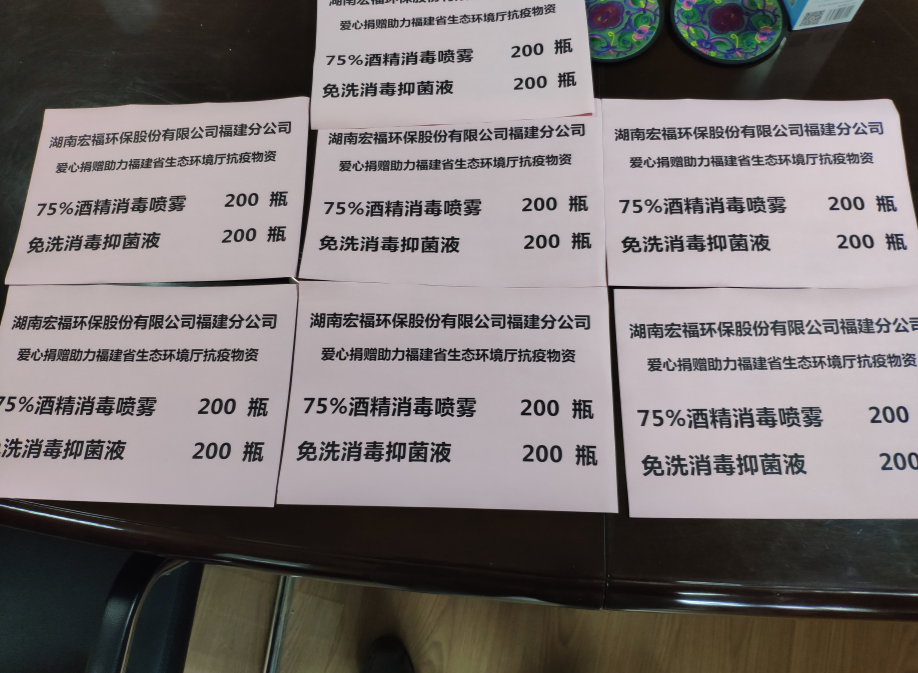 湖南宏福环保股份有限公司福建分公司
爱心捐赠助力福建省生态环境厅抗疫物资
75%酒精消毒喷雾 200 瓶
免洗消毒抑菌液 200 瓶
湖南宏福环保股份有限公司福建分公司
爱心捐赠助力福建省生态环境厅抗疫物资
75%酒精消毒喷雾 200 瓶
免洗消毒抑菌液 200 瓶
湖南宏福环保股份有限公司福建分公司
爱心捐赠助力福建省生态环境厅抗疫物资
75%酒精消毒喷雾 200 瓶
免洗消毒抑菌液 200 瓶
湖南宏福环保股份有限公司福建分公司
爱心捐赠助力福建省生态环境厅抗疫物资
75%酒精消毒喷雾 200 瓶
免洗消毒抑菌液 200 瓶
湖南宏福环保股份有限公司福建分公司
爱心捐赠助力福建省生态环境厅抗疫物资
75%酒精消毒喷雾 200 瓶
免洗消毒抑菌液 200 瓶
湖南宏福环保股份有限公司福建分公司
爱心捐赠助力福建省生态环境厅抗疫物资
75%酒精消毒喷雾 200 瓶
免洗消毒抑菌液 200 瓶
湖南宏福环保股份有限公司福建分公
爱心捐赠助力福建省生态环境厅抗疫物资
75%酒精消毒喷雾 200
免洗消毒抑菌液 200